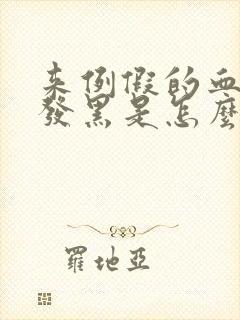 来例假的血
發黑是怎麼
羅地亞